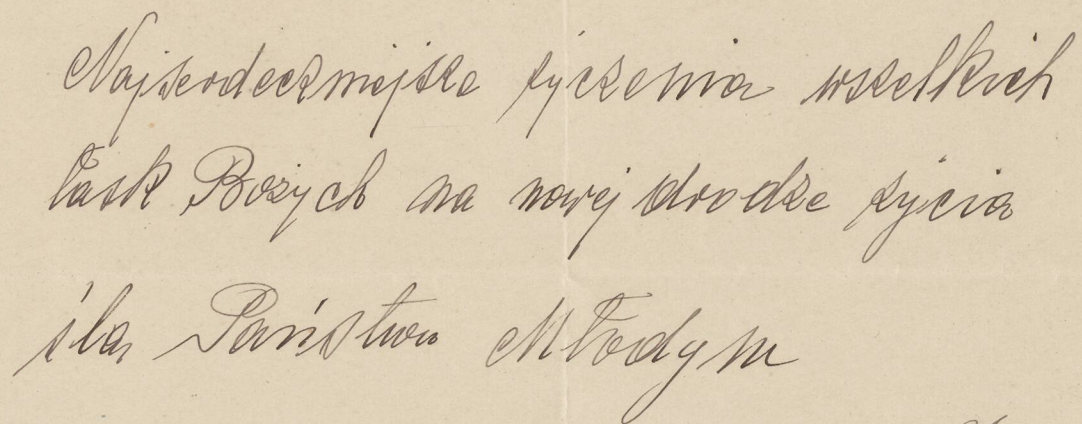 Najserdeczniejsze życzenia wszelkich
łask Bożych na nowej drodze życia
śla Państwu Młodym